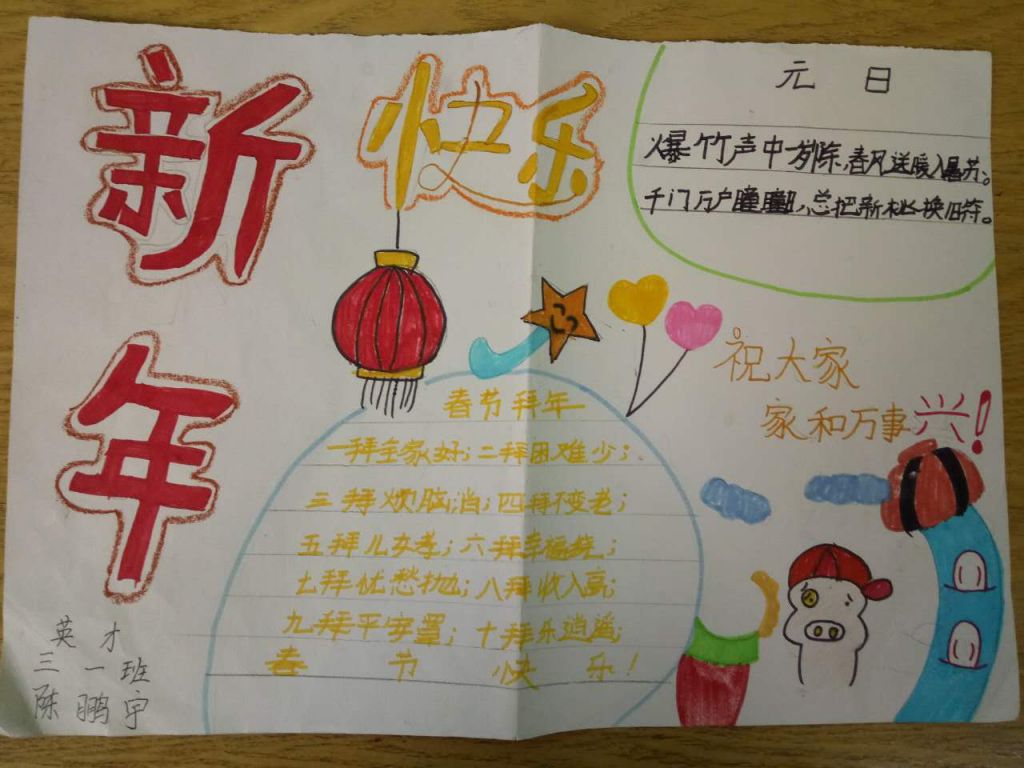 新年
快乐
元日
爆竹声中一岁除,春风送暖入屠苏。
千门万户曈曈日,总把新桃换旧符。
祝大家
家和万事兴!
春节拜年
一拜全家好;二拜困难少;
三拜烦脑消;四拜不变老;
五拜儿女孝;六拜幸福绕;
七拜忧愁抛;八拜收入高;
九拜平安罩;十拜乐逍遥;
春节快乐!
英才
三一班
陈鹏宇